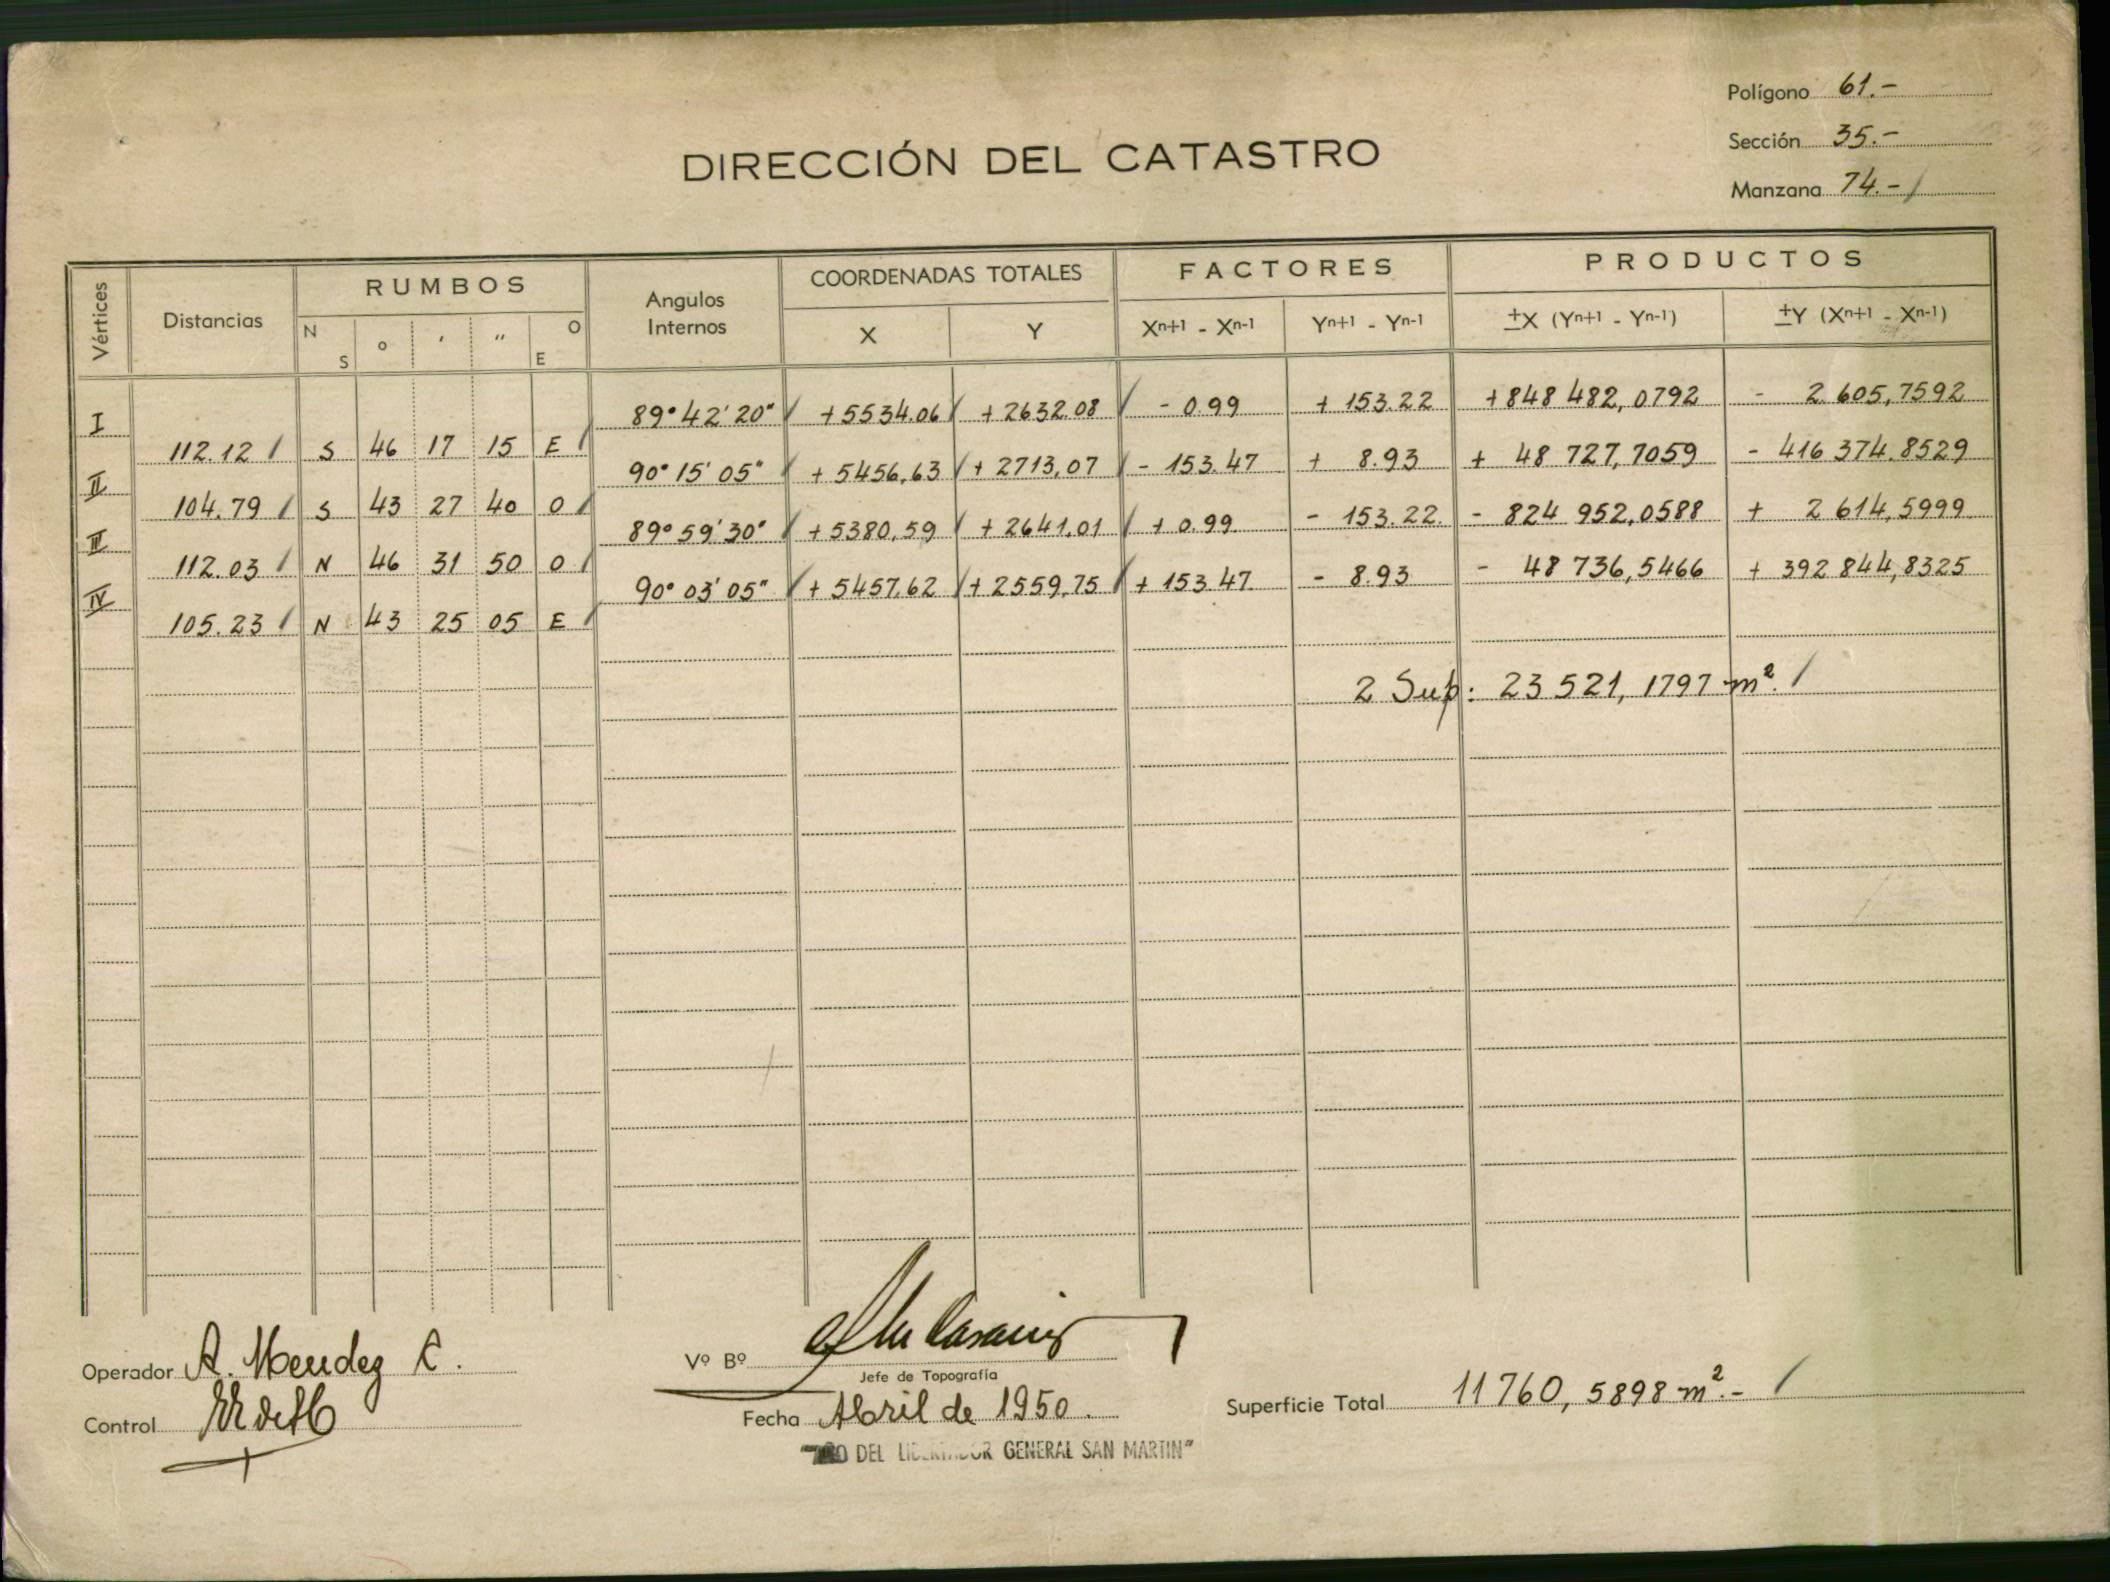 Polígono 61.-
Sección 35.-
Manzana 74.-
DIRECCIÓN DEL CATASTRO
Vértices Distancias RUMBOS Angulos Internos COORDENADAS TOTALES FACTORES PRODUCTOS
N S o ' '' O E X Y Xn+1 - Xn-1 Yn+1 - Yn-1 ±X (Yn+1 - Yn-1) ±Y (Xn+1 - Xn-1)
I 89° 42' 20" +5534.06 +2632.08 - 0.99 + 153.22 +848 482,0792 - 2 605,7592
112.12 S 46 17 15 E
II 90° 15' 05" +5456,63 +2713,07 - 153.47 + 8.93 + 48 727,7059 - 416 374.8529
104.79 S 43 27 40 O
III 89° 59' 30" +5380,59 +2641,01 + 0.99 - 153.22. - 824 952,0588 + 2 614,5999
112.03 N 46 31 50 O
IV 90° 03' 05" +5457,62 +2559,75 + 153.47 - 8.93 - 48 736,5466 + 392 844,8325
105.23 N 43 25 05 E
2 Sup: 23 521, 1797 m².
Operador A. Mendez C.
Control
Vº Bº
Jefe de Topografía
Fecha Abril de 1950.
Superficie Total 11760, 5898 m².-
DEL LIBERTADOR GENERAL SAN MARTIN"